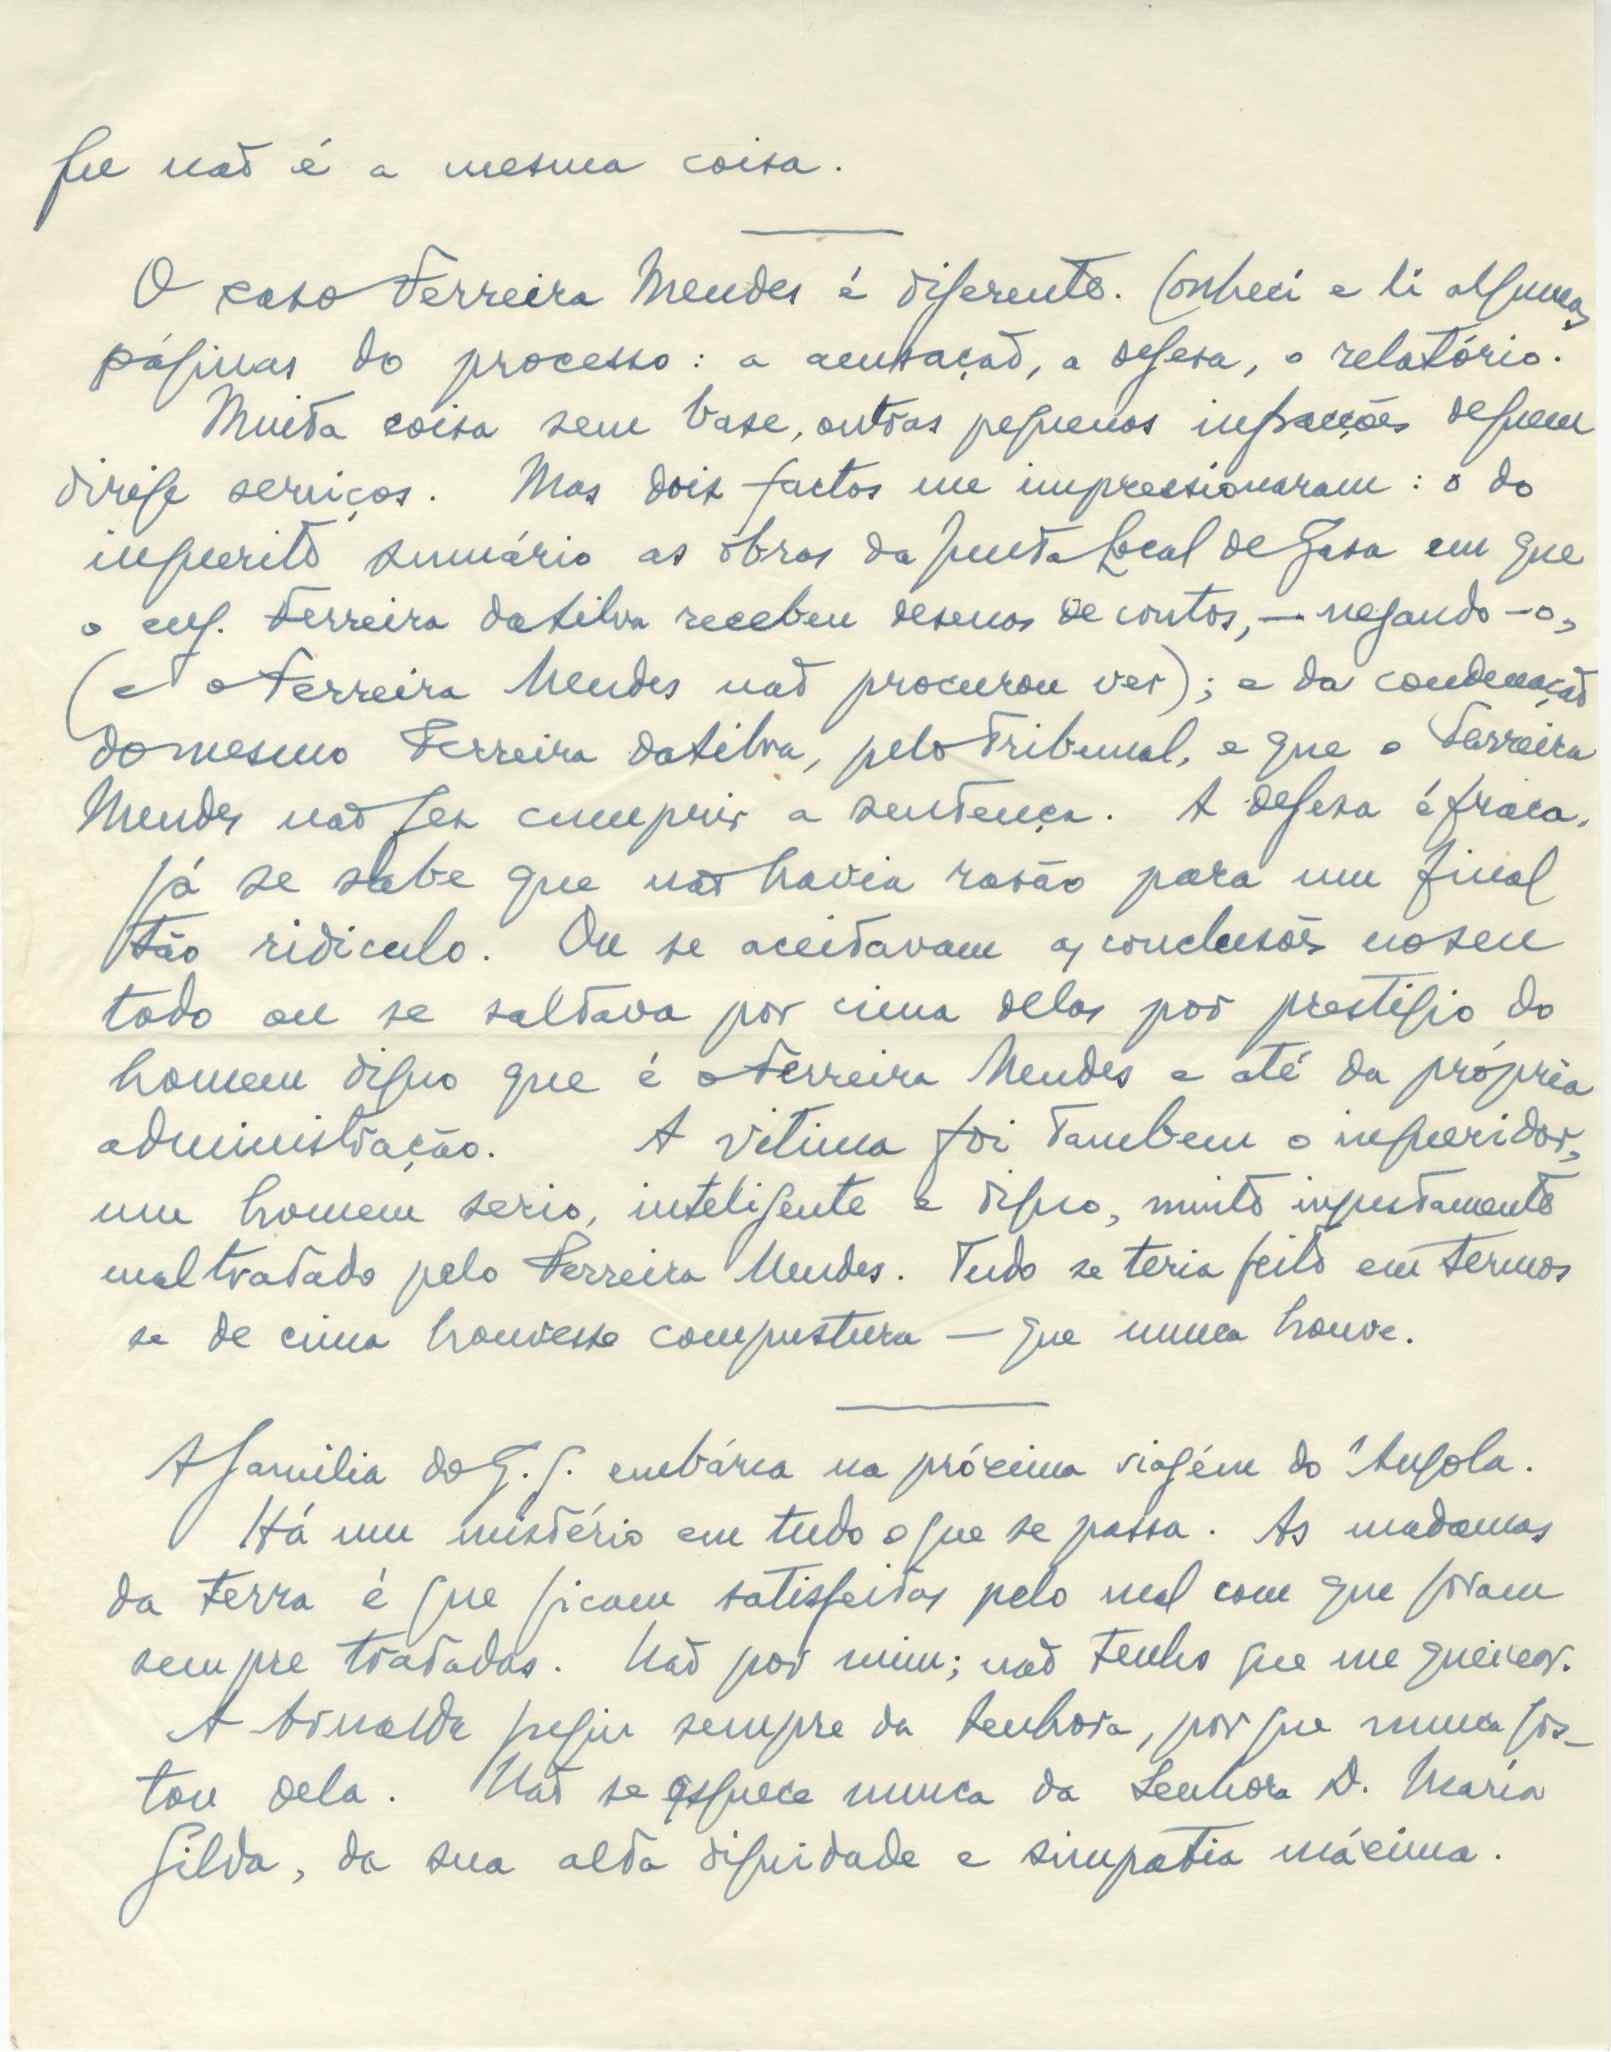 que não é a mesma coisa.
O caso Ferreira Mendes é diferente. Conheci e li algumas
páginas do processo: a acusação, a defesa, o relatório.
Muita coisa sem base, outras pequenas infracções de quem
dirige serviços. Mas dois factos me impressionaram: o do
inquerito sumário as obras da Junta Local de Gaza em que
o eng. Ferreira da Silva recebeu desenas de contos, — negando-o,
(e o Ferreira Mendes não procurou ver); e da condenação
do mesmo Ferreira da Silva, pelo Tribunal, e que o Ferreira
Mendes não fez cumprir a sentença. A defesa é fraca.
Já se sabe que não havia rasão para um final
tão ridiculo. Ou se aceitavam as conclusões no seu
todo ou se saltava por cima delas por prestigio do
homem digno que é o Ferreira Mendes e até da própria
administração. A vitima foi tambem o inqueridor,
um homem serio, inteligente e digno, muito injustamente
mal tratado pelo Ferreira Mendes. Tudo se teria feito em termos
se de cima houvesse compustura — que nunca houve.
A familia do G. G. embárca na próxima viagém do "Angola.
Há um mistério em tudo o que se passa. As madamas
da terra é que ficam satisfeitas pelo mal com que foram
sempre tratadas. Não por mim; não tenho que me queixar.
A Arnalda fugiu sempre da Senhora, por que nunca gos-
tou dela. Não se esquece nunca da Senhora D. Maria
Gilda, da sua alta dignidade e simpatia máxima.